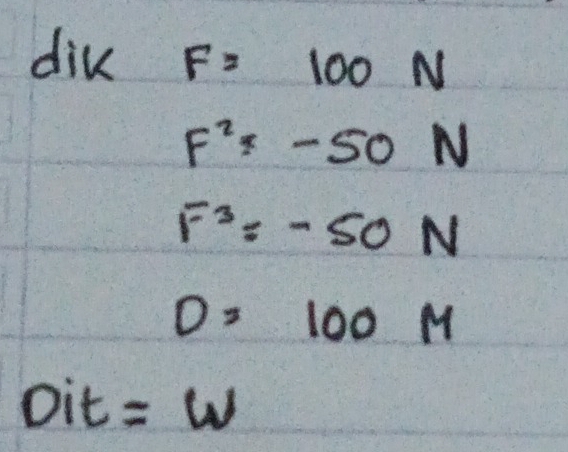 dik F = 100 N
F² = -50 N
F³ = -50 N
D = 100 M
Dit = W